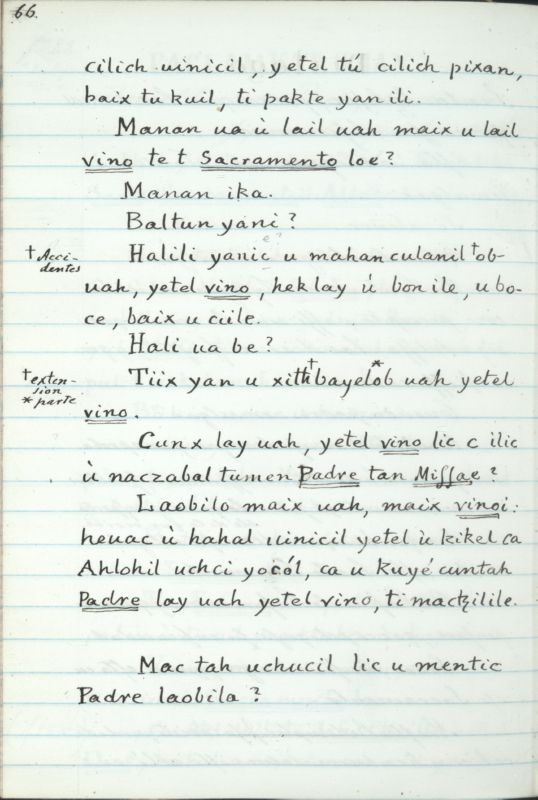 66.
cilich uinicil, yetel tú cilich pixan,
baix tu kuil, ti pakte yan ili.
Manan ua ù lail uah maix u lail
vino te t Sacramento loe?
Manan ika.
Baltun yani?
† Acci-
dentes
Halili yanic u mahan culanil † ob-
uah, yetel vino, heklay ù bon ile, u bo-
ce, baix u ciile.
Hali ua be?
† exten-
sion
* parte
Tiix yan u xith † bayel * ob uah yetel
vino.
Cunx lay uah, yetel vino lic c ilic
ù naczabal tumen Padre tan Missae?
Laobilo maix uah, maix vinoi:
heuac ù hahal uinicil yetel ù kikel ca
Ahlohil uchci yocól, ca u kuyé cuntah
Padre lay uah yetel vino, ti mactzilile.
Mac tah uchucil lic u mentic
Padre laobila?